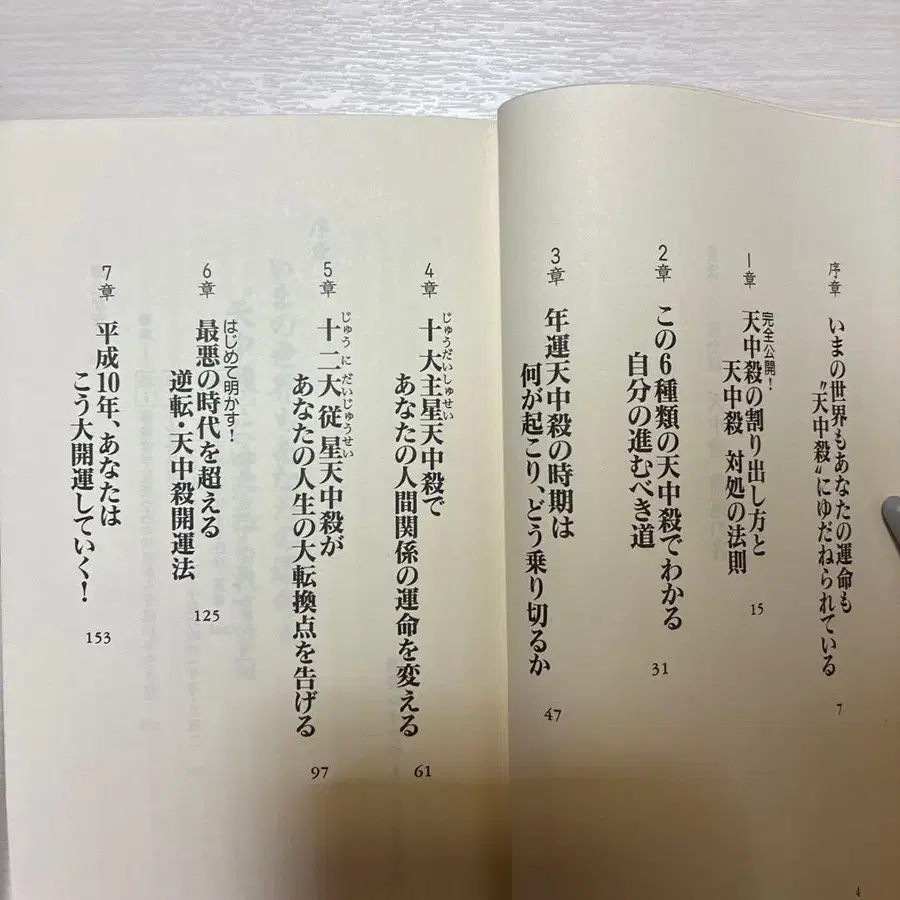 序章
いまの世界もあなたの運命も
〝天中殺〟にゆだねられている
7
1章
完全公開!
天中殺の割り出し方と
天中殺 対処の法則
15
2章
この6種類の天中殺でわかる
自分の進むべき道
31
3章
年運天中殺の時期は
何が起こり、どう乗り切るか
47
4
4章
じゅうだいしゅせい
十大主星天中殺で
あなたの人間関係の運命を変える
61
5章
じゅう に だいじゅうせい
十二大従星天中殺が
あなたの人生の大転換点を告げる
97
6章
はじめて明かす!
最悪の時代を超える
逆転・天中殺開運法
125
7章
平成10年、あなたは
こう大開運していく!
153